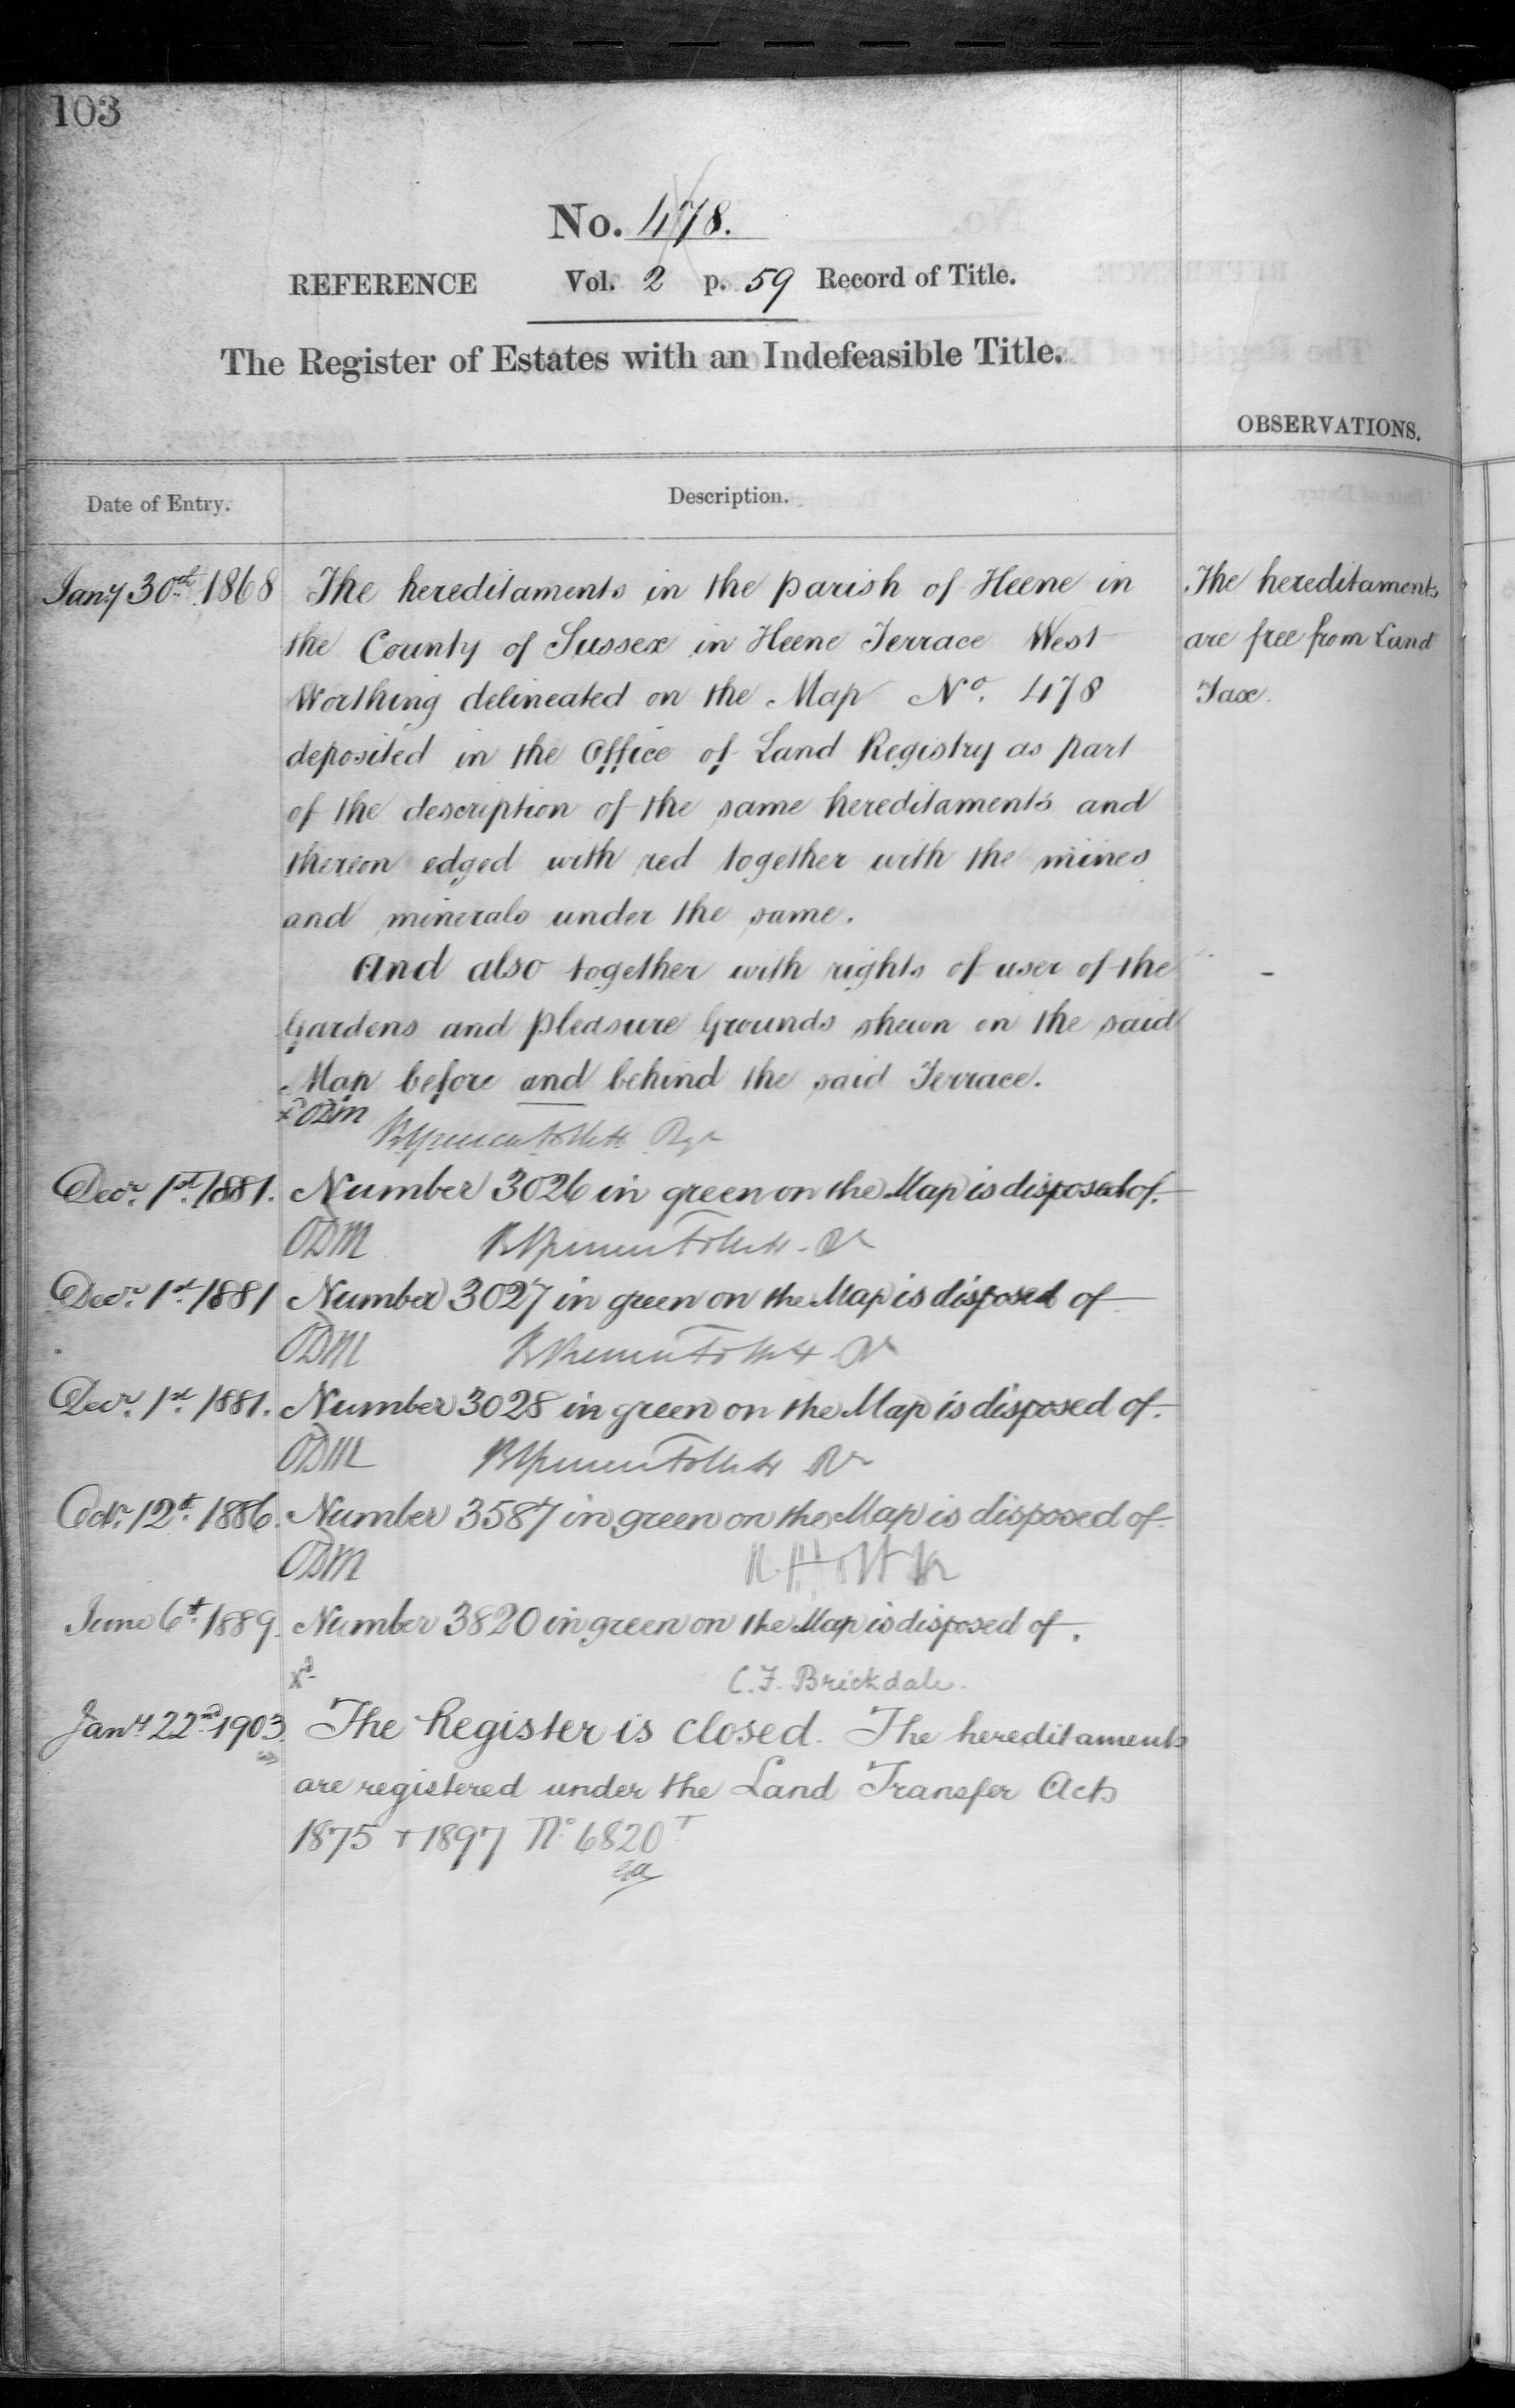 103
No. 478.
REFERENCE Vol. 2 p. 59 Record of Title.
The Register of Estates with an Indefeasible Title.
OBSERVATIONS.
Date of Entry.
Description.
Jany 30th 1868
The hereditaments in the parish of Heene in
the County of Sussex in Heene Terrace West
Worthing delineated on the Map No. 478
deposited in the Office of Land Registry as part
of the description of the same hereditaments and
thereon edged with red together with the mines
and minerals under the same.
And also together with rights of user of the
Gardens and Pleasure Grounds shewn on the said
Map before and behind the said Terrace.
The hereditaments
are free from Land
Tax.
x ODM
Decr. 1st. 1881. Number 3026 in green on the Map is disposed of.
ODM
Decr. 1st. 1881 Number 3027 in green on the Map is disposed of
ODM
Decr. 1st. 1881. Number 3028 in green on the Map is disposed of.
ODM
Octr. 12th. 1886. Number 3587 in green on the Map is disposed of.
ODM
June 6th. 1889. Number 3820 in green on the Map is disposed of.
C. F. Brickdale.
Jany 22nd 1903. The Register is closed. The hereditaments
are registered under the Land Transfer Acts
1875 + 1897 No 6820